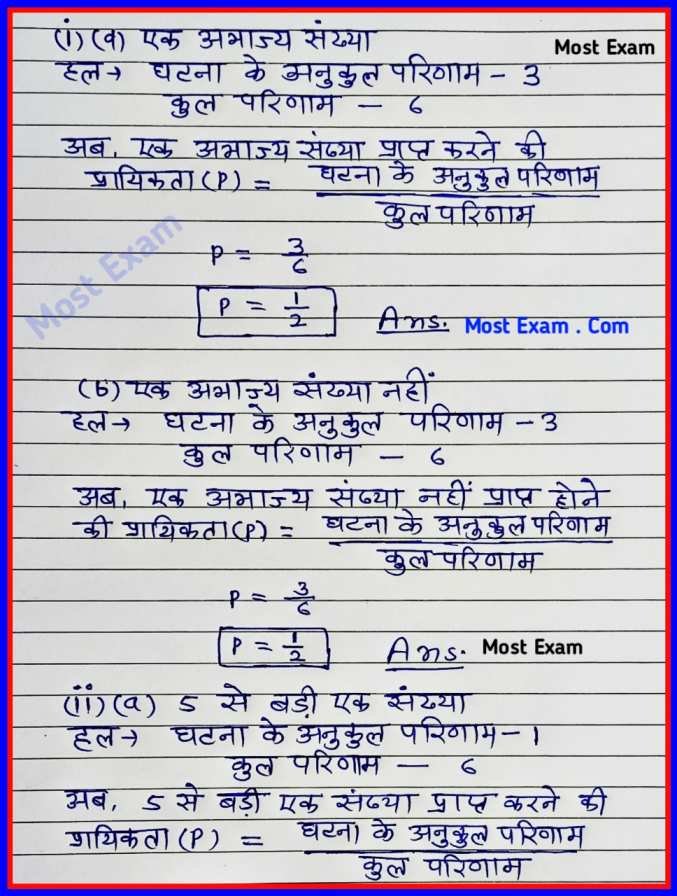 (i) (a) एक अभाज्य संख्या
Most Exam
हल → घटना के अनुकुल परिणाम - 3
कुल परिणाम — 6
अब, एक अभाज्य संख्या प्राप्त करने की
प्रायिकता (P) = घटना के अनुकुल परिणाम
कुल परिणाम
P = 3/6
Most Exam
P = 1/2 Ans. Most Exam . Com
(b) एक अभाज्य संख्या नहीं
हल → घटना के अनुकुल परिणाम - 3
कुल परिणाम — 6
अब, एक अभाज्य संख्या नहीं प्राप्त होने
की प्रायिकता (P) = घटना के अनुकुल परिणाम
कुल परिणाम
P = 3/6
P = 1/2 Ans. Most Exam
(ii) (a) 5 से बड़ी एक संख्या
हल → घटना के अनुकुल परिणाम - 1
कुल परिणाम — 6
अब, 5 से बड़ी एक संख्या प्राप्त करने की
प्रायिकता (P) = घटना के अनुकुल परिणाम
कुल परिणाम